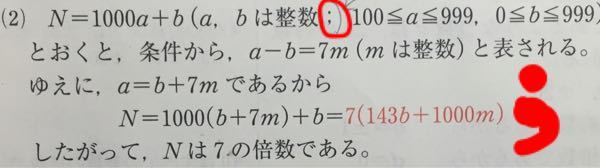 (2) N=1000a+b(a, bは整数; 100≦a≦999, 0≦b≦999)
とおくと,条件から,a-b=7m(mは整数)と表される。
ゆえに,a=b+7mであるから
N=1000(b+7m)+b=7(143b+1000m)
したがって,Nは7の倍数である。
;